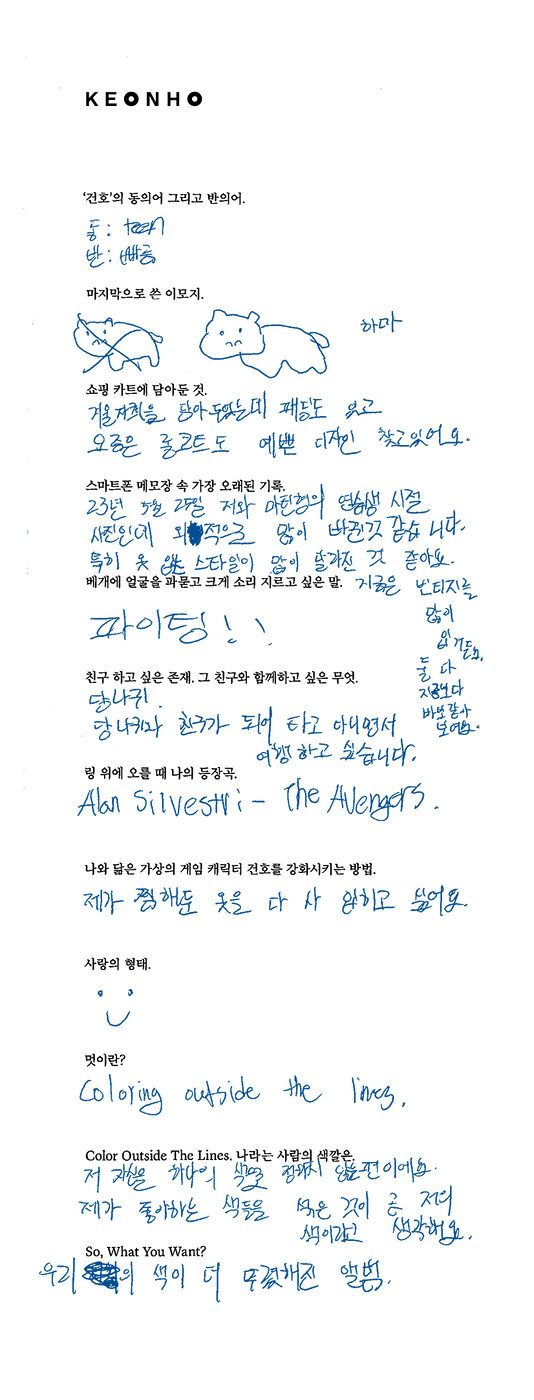 KEONHO
‘건호’의 동의어 그리고 반의어.
동: teen
반: 빠름
마지막으로 쓴 이모지.
하마
쇼핑 카트에 담아둔 것.
겨울자켓을 담아 두었는데 패딩도 있고
요즘은 롱코트도 예쁜 디자인 찾고있어요.
스마트폰 메모장 속 가장 오래된 기록.
23년 5월 25일 저와 마틴형의 연습생 시절
사진인데 외적으로 많이 바뀐것 같습니다.
특히 옷 스타일이 많이 달라진 것 같아요.
지금은 빈티지를
많이
입거든요.
둘 다
지금보다
바보같아
보여요.
베개에 얼굴을 파묻고 크게 소리 지르고 싶은 말.
파이팅!!
친구 하고 싶은 존재. 그 친구와 함께하고 싶은 무엇.
당나귀.
당나귀와 친구가 되어 타고 다니면서
여행하고 싶습니다.
링 위에 오를 때 나의 등장곡.
Alan Silvestri - The Avengers.
나와 닮은 가상의 게임 캐릭터 건호를 강화시키는 방법.
제가 찜해둔 옷을 다 사 입히고 싶어요.
사랑의 형태.
멋이란?
Coloring outside the lines.
Color Outside The Lines. 나라는 사람의 색깔은.
저 자신을 하나의 색으로 정하지 않는편이에요.
제가 좋아하는 색들을 섞은 것이 곧 저의
색이라고 생각해요.
So, What You Want?
우리의 색이 더 뚜렷해진 앨범.